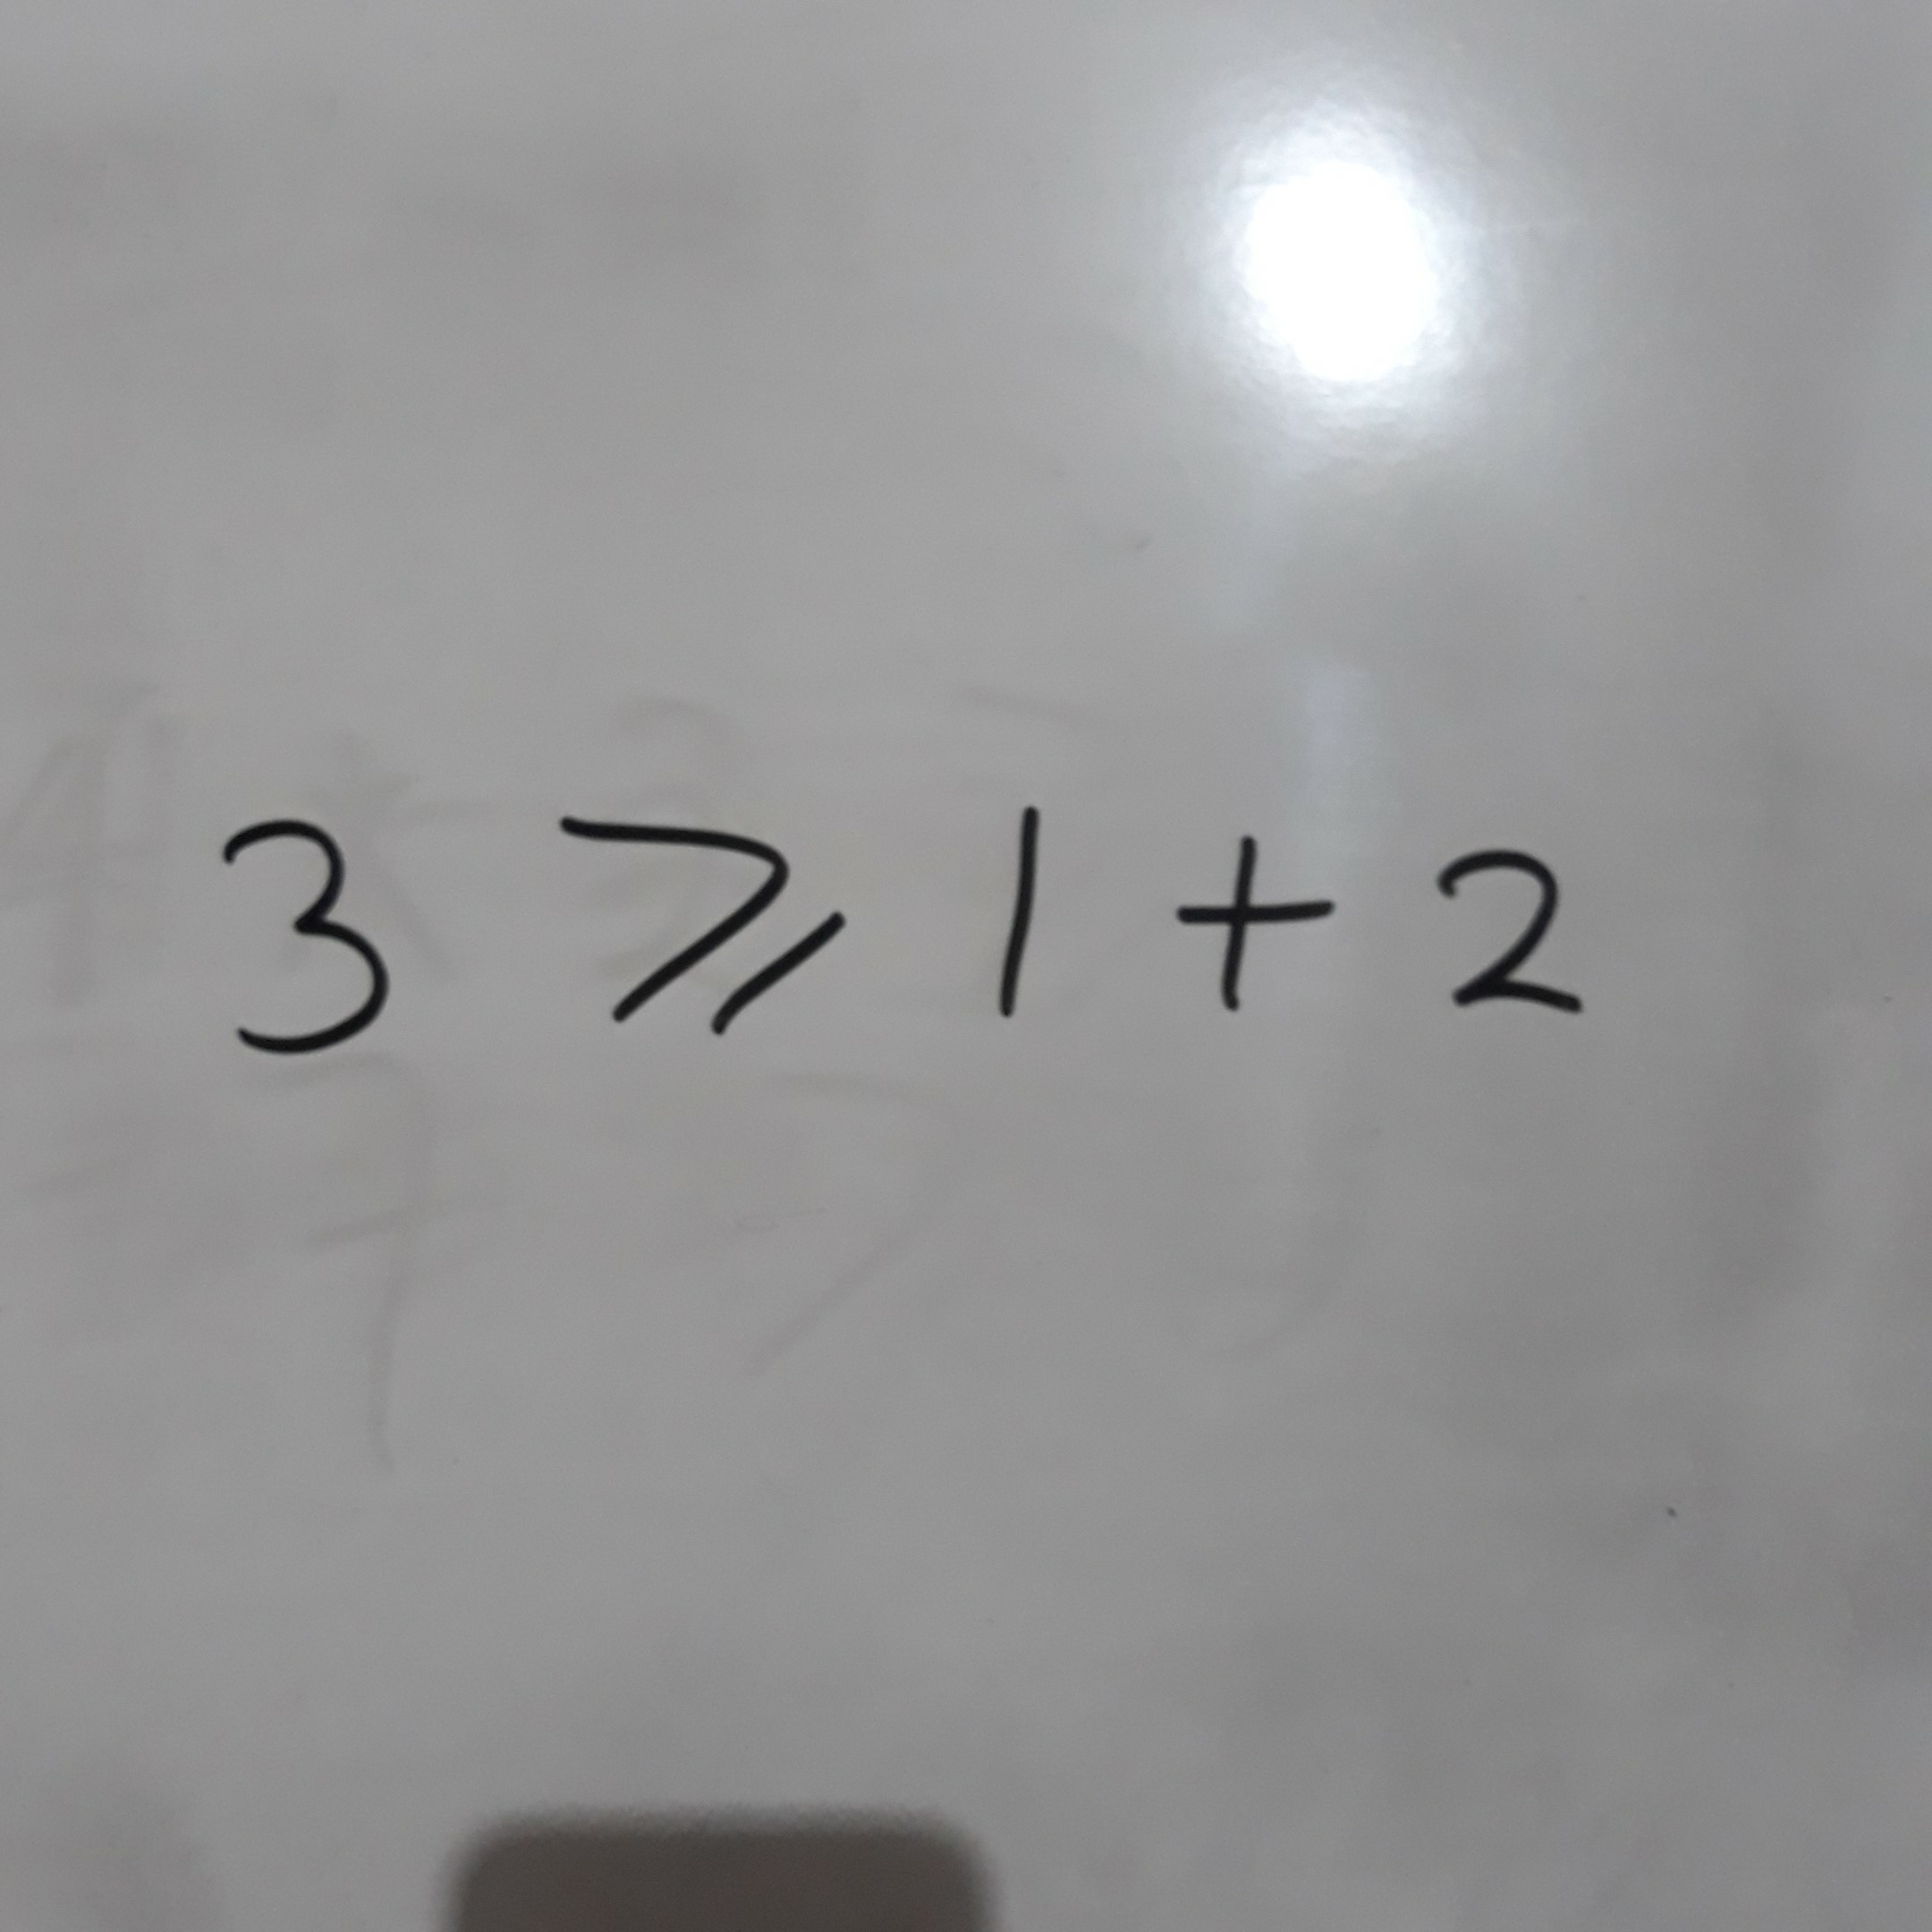 3 ⩾ 1 + 2